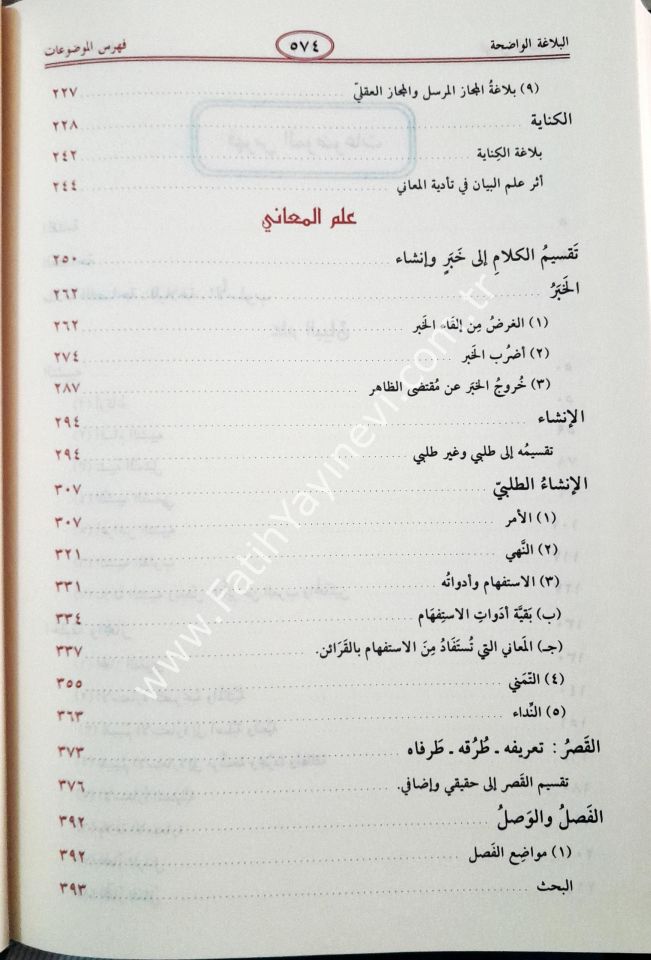 البلاغة الواضحة ٥٧٤ فهرس الموضوعات
(٩) بلاغةُ المجاز المرسل والمجاز العقليّ ٢٢٧
الكناية ٢٢٨
بلاغة الكِناية ٢٤٢
أثر علم البيان في تأدية المعاني ٢٤٤
علم المعاني
تَقسيمُ الكلامِ إلى خَبَرٍ وإنشاء ٢٥٠
الخَبَرُ ٢٦٢
(١) الغرضُ مِن إلقاء الخبر ٢٦٢
(٢) أضرُب الخبر ٢٧٤
(٣) خُروجُ الخبَر عن مُقتضى الظاهر ٢٨٧
الإنشاء ٢٩٤
تقسيمُه إلى طلبي وغير طلبي ٢٩٤
الإنشاءُ الطلبيّ ٣٠٧
(١) الأمر ٣٠٧
(٢) النَّهي ٣٢١
(٣) الاستفهام وأدواتُه ٣٣١
(ب) بَقيَّة أدَواتِ الاستِفهَام ٣٣٤
(جـ) المَعاني التي تُستَفَادُ مِنَ الاستفهام بالقَرائن. ٣٣٧
(٤) التّمَني ٣٥٥
(٥) النِّداء ٣٦٣
القَصرُ: تعريفه ـ طُرُقه ـ طَرفاه ٣٧٣
تقسيم القَصر إلى حقيقي وإضافي. ٣٧٦
الفَصلُ والوَصلُ ٣٩٢
(١) مواضِع الفَصل ٣٩٢
البحث ٣٩٣
www.FatihYayinevi.com.tr